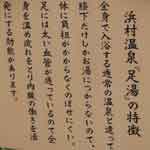 浜村温泉『足湯』の特徴
全身で入浴する通常の温泉と違って
膝下だけしかお湯につからないので、
体に負担がかからなくのぼせにくい。
足には太い血管が通っているので全
身を温め疲れをとり内臓の働きを活
発にする効能があります。